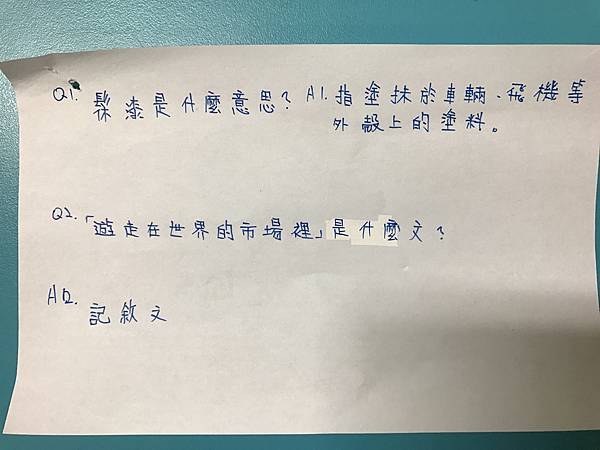 Q1. 髹漆是什麼意思? A1. 指塗抹於車輛、飛機等
外殼上的塗料。
Q2.「遊走在世界的市場裡」是什麼文?
A2.
記敘文